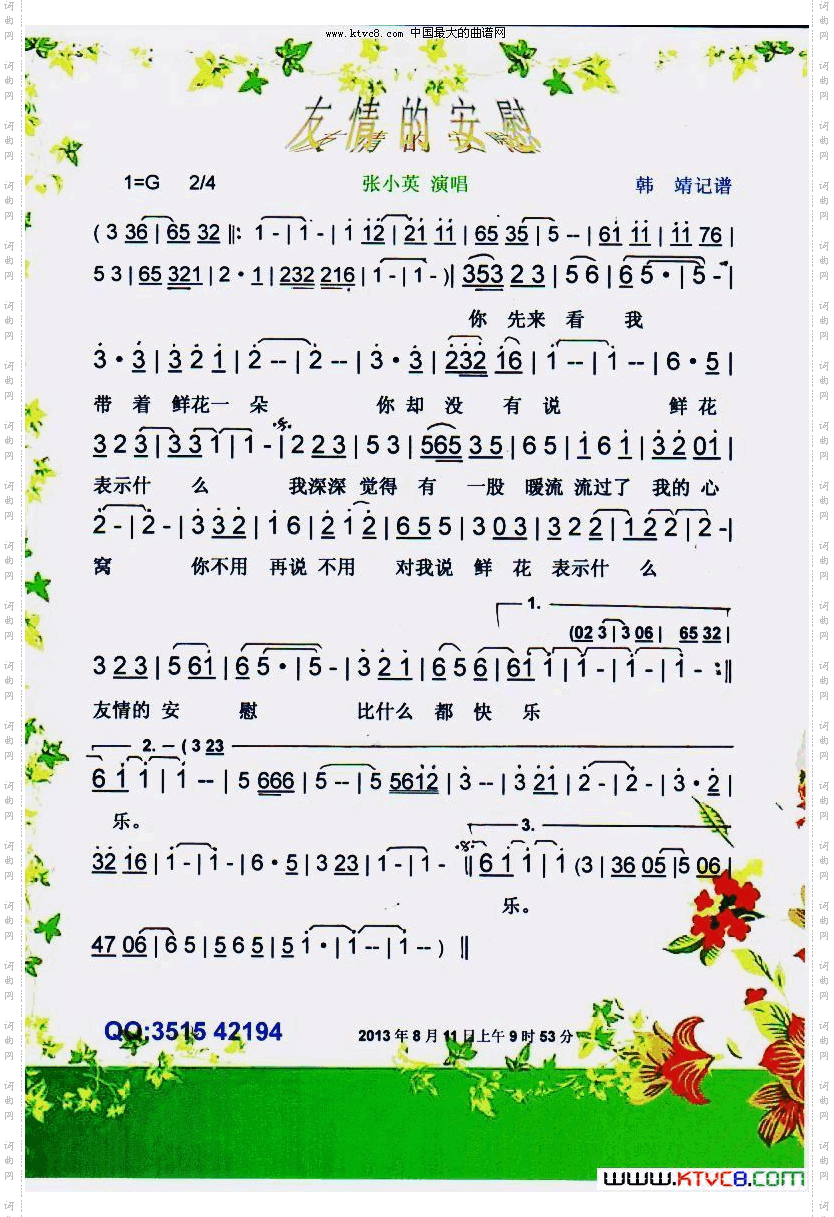 www.ktvc8.com 中国最大的曲谱网
友情的安慰
1=G 2/4 张小英 演唱 韩 靖记谱
( 3 36 | 65 32 ‖: 1 - | 1 - | 1 12 | 21 11 | 65 35 | 5 -- | 61 11 | 11 76 |
5 3 | 65 321 | 2 · 1 | 232 216 | 1 - | 1 - ) | 353 2 3 | 5 6 | 65 · | 5 - |
你 先来 看 我
3 · 3 | 3 2 1 | 2 -- | 2 -- | 3 · 3 | 232 16 | 1 -- | 1 -- | 6 · 5 |
带 着 鲜花一 朵 你 却 没 有 说 鲜 花
3 2 3 | 3 3 1 | 1 - | 2 2 3 | 5 3 | 565 3 5 | 6 5 | 1 6 1 | 3 2 01 |
表示什 么 我深深 觉得 有 一股 暖流 流过了 我的 心
2 - | 2 - | 3 3 2 | 1 6 | 2 1 2 | 6 5 5 | 3 0 3 | 3 2 2 | 1 2 2 | 2 - |
窝 你不用 再说 不用 对我说 鲜 花 表示什 么
1.
(02 3 | 3 06 | 65 32 |
3 2 3 | 5 61 | 6 5 · | 5 - | 3 2 1 | 6 5 6 | 61 1 | 1 - | 1 - | 1 - :‖
友情的 安 慰 比什么 都 快 乐
2. – ( 3 23
6 1 1 | 1 -- | 5 666 | 5 -- | 5 5612 | 3 -- | 3 21 | 2 - | 2 - | 3 · 2 |
乐。
3.
32 16 | 1 - | 1 - | 6 · 5 | 3 23 | 1 - | 1 - ‖ 6 1 1 | 1 (3 | 36 05 | 5 06 |
乐。
47 06 | 6 5 | 5 6 5 | 5 1 · | 1 -- | 1 -- ) ‖
QQ:3515 42194 2013 年 8 月 11 日上午 9 时 53 分
www.KTVC8.com